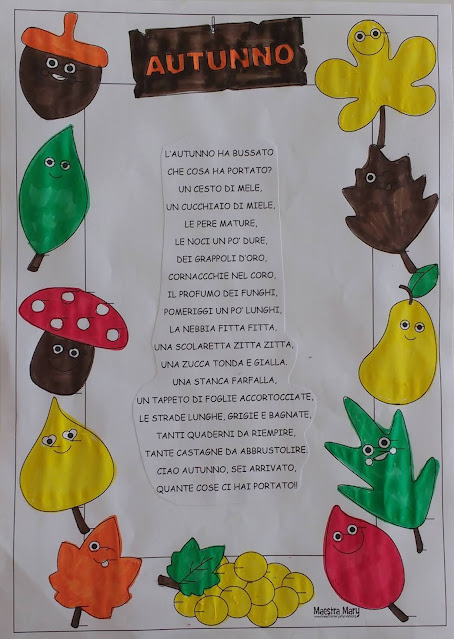 AUTUNNO
L'AUTUNNO HA BUSSATO
CHE COSA HA PORTATO?
UN CESTO DI MELE,
UN CUCCHIAIO DI MIELE,
LE PERE MATURE,
LE NOCI UN PO' DURE,
DEI GRAPPOLI D'ORO,
CORNACCCHIE NEL CORO,
IL PROFUMO DEI FUNGHI,
POMERIGGI UN PO' LUNGHI,
LA NEBBIA FITTA FITTA,
UNA SCOLARETTA ZITTA ZITTA,
UNA ZUCCA TONDA E GIALLA.
UNA STANCA FARFALLA,
UN TAPPETO DI FOGLIE ACCORTOCCIATE,
LE STRADE LUNGHE, GRIGIE E BAGNATE,
TANTI QUADERNI DA RIEMPIRE,
TANTE CASTAGNE DA ABBRUSTOLIRE.
CIAO AUTUNNO, SEI ARRIVATO,
QUANTE COSE CI HAI PORTATO!!
Maestra Mary